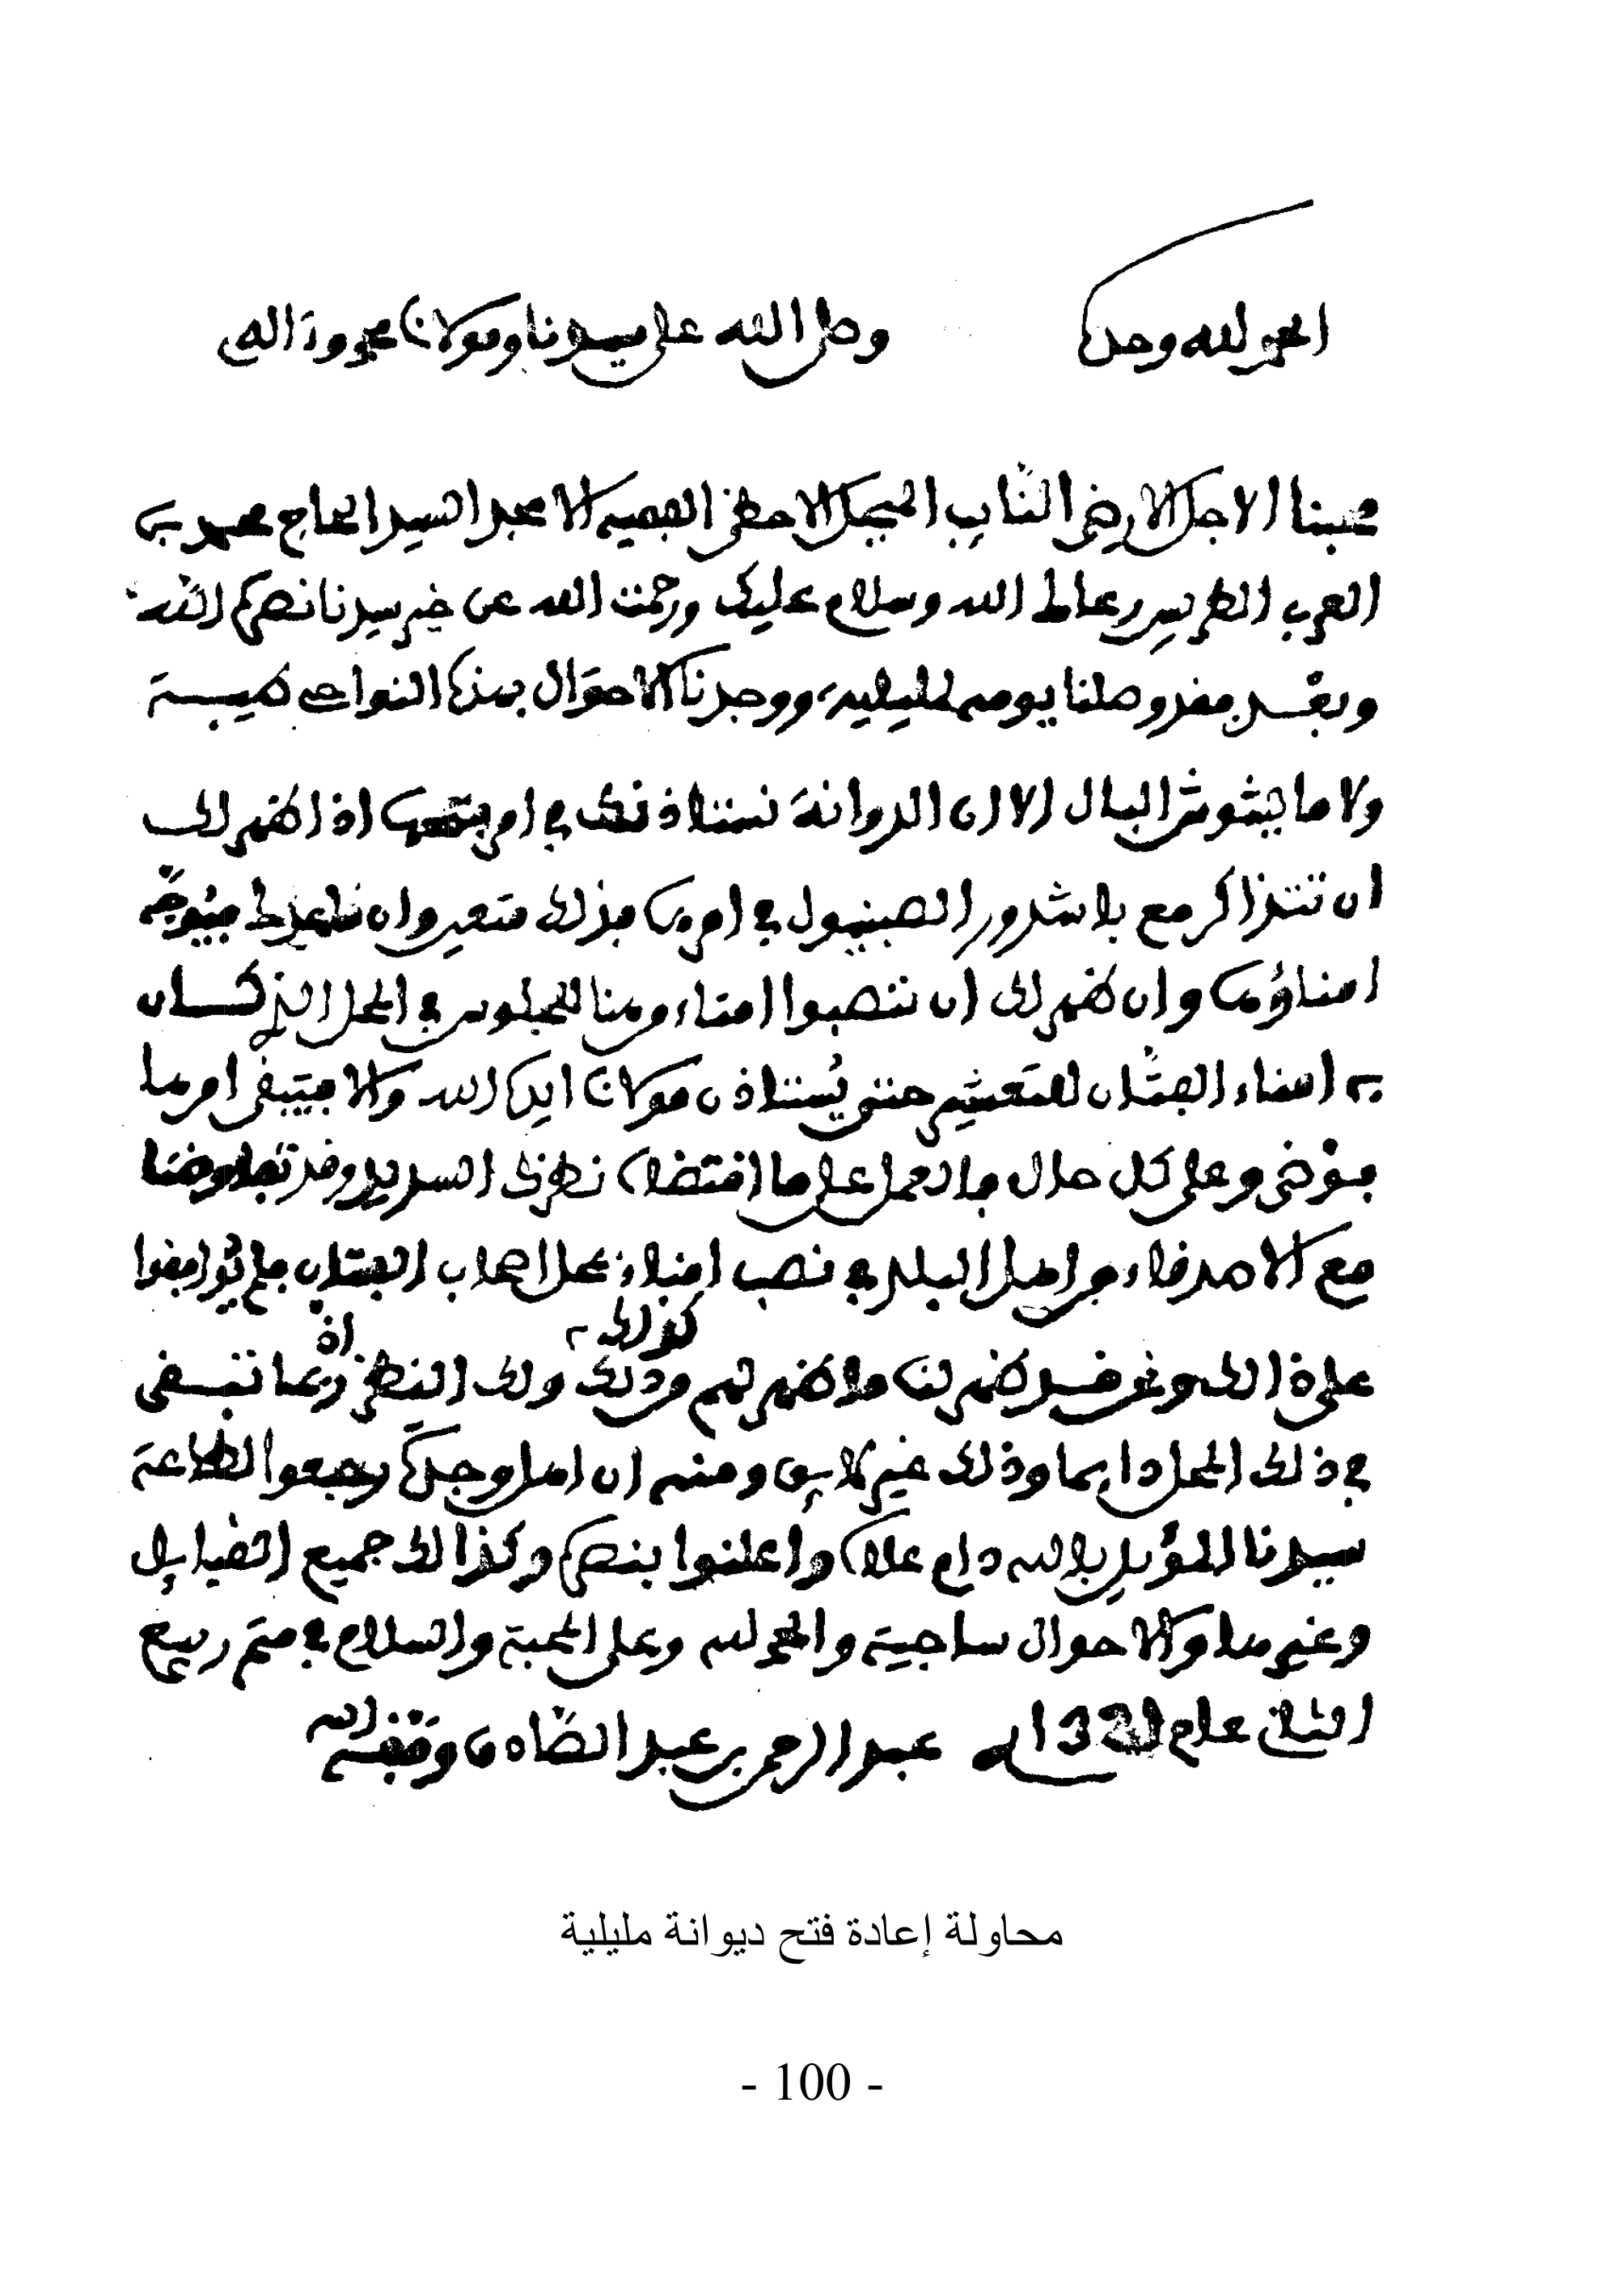 الحمد لله وحده
وصلى الله على سيدنا ومولانا محمد وءاله
محبنا الاجل الارضى النايب المبجل الاحظى الفقيه الامجد السيد الحاج محمد بن
العرب الطريس رعاك الله وسلام عليك ورحمت الله عن خير سيدنا نصره الله
وبعد فقد وصلنا يومه لمليلية ووجدنا الاحوال بهذه النواحى طيبة
ولا ما يشوش البال الا ان الديوانة نستاذنك في امر فتحها اذا ظهر لك
ان تتذاكر مع باشدور الصبنيول في امرها فذلك متعين وان فيتوجه
امناؤها وان ظهر لك ان تنصبوا امناء منا للجلوس في المحل الذي كان
به امناء الفتان للتعشير حتى يستاذن مولانا ايده الله والا فيبقى امرها
فوضى وعلى كل حال فالعمل على ما اقتضاه نظرك السديد وقد تفاوضنا
مع الاصدقاء من اهل البلد في نصب امناء بمحل اصحاب الفتان فلم يوافقوا
على ذالك وقد ظهر لنا ما ظهر لهم في ذلك كذالك ولك النظر اذ ربما تبقى
في ذلك المحل دايما وذلك غير لايق ومنه ان اهل وجدة رجعوا لطاعة
سيدنا المؤيد بالله دام علاه واعلنوا بنصره وكذالك جميع القبايل
وغيرها والاحوال ساجية والحمد لله وعلى المحبة والسلام في متم ربيع
الثاني عام 1321 عبد الرحمن بن عبد الصادق وفقه الله
محاولة إعادة فتح ديوانة مليلية
- 100 -